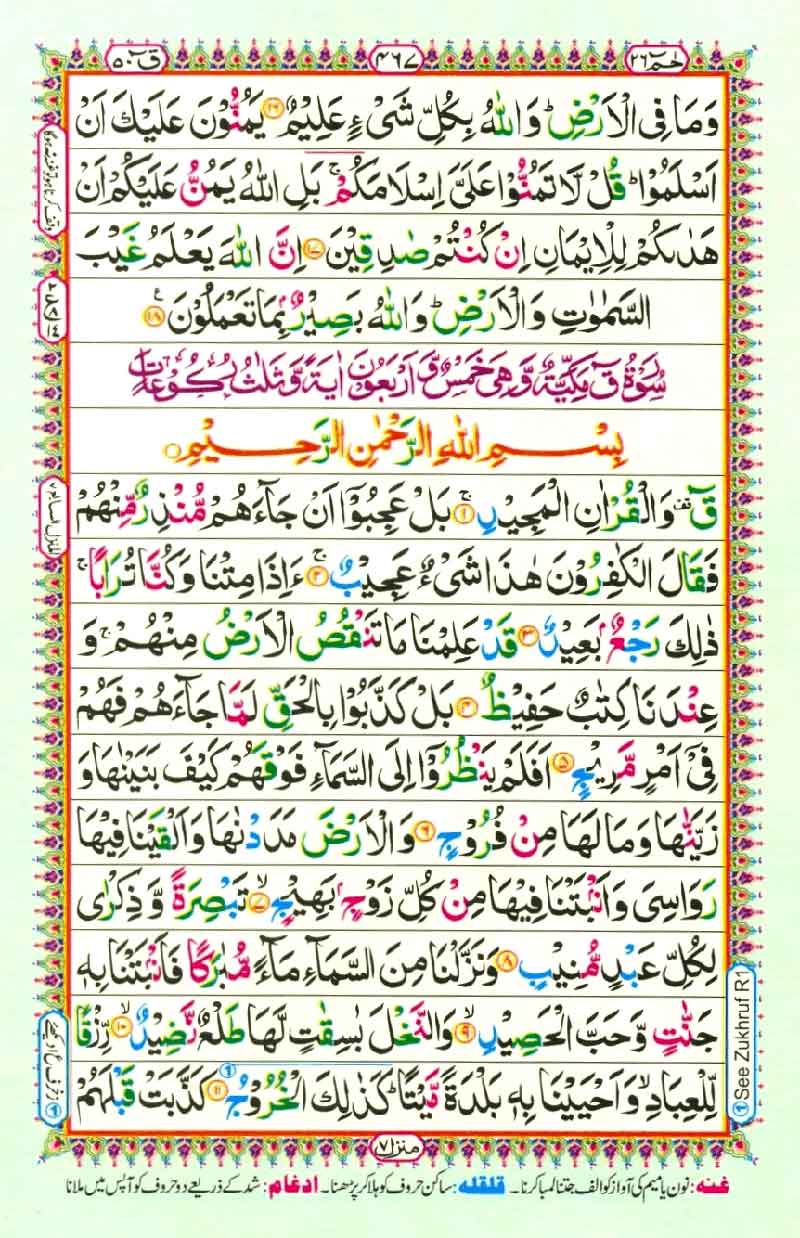 حٰمٓ ٢٦
٤٦٧
قٓ ٥٠
وَمَا فِی الْاَرْضِ ؕ وَاللّٰهُ بِكُلِّ شَیْءٍ عَلِیْمٌ ۝۱۶ یَمُنُّوْنَ عَلَیْكَ اَنْ
اَسْلَمُوْا ؕ قُلْ لَّا تَمُنُّوْا عَلَیَّ اِسْلَامَكُمْ ۚ بَلِ اللّٰهُ یَمُنُّ عَلَیْكُمْ اَنْ
هَدٰىكُمْ لِلْاِیْمَانِ اِنْ كُنْتُمْ صٰدِقِیْنَ ۝۱۷ اِنَّ اللّٰهَ یَعْلَمُ غَیْبَ
السَّمٰوٰتِ وَالْاَرْضِ ؕ وَاللّٰهُ بَصِیْرٌۢ بِمَا تَعْمَلُوْنَ ۝۱۸
سُوْرَةُ قٓ مَكِّیَّةٌ وَّهِیَ خَمْسٌ وَّ اَرْبَعُوْنَ اٰیَةً وَّثَلٰثُ رُكُوْعَاتٍ
بِسْمِ اللّٰهِ الرَّحْمٰنِ الرَّحِیْمِ
قٓ ۚ۫ وَالْقُرْاٰنِ الْمَجِیْدِ ۝۱ۚ بَلْ عَجِبُوْۤا اَنْ جَآءَهُمْ مُّنْذِرٌ مِّنْهُمْ
فَقَالَ الْكٰفِرُوْنَ هٰذَا شَیْءٌ عَجِیْبٌ ۝۲ۚ ءَاِذَا مِتْنَا وَكُنَّا تُرَابًا ۚ
ذٰلِكَ رَجْعٌۢ بَعِیْدٌ ۝۳ قَدْ عَلِمْنَا مَا تَنْقُصُ الْاَرْضُ مِنْهُمْ ۚ وَ
عِنْدَنَا كِتٰبٌ حَفِیْظٌ ۝۴ بَلْ كَذَّبُوْا بِالْحَقِّ لَمَّا جَآءَهُمْ فَهُمْ
فِیْۤ اَمْرٍ مَّرِیْجٍ ۝۵ اَفَلَمْ یَنْظُرُوْۤا اِلَی السَّمَآءِ فَوْقَهُمْ كَیْفَ بَنَیْنٰهَا وَ
زَیَّنّٰهَا وَمَا لَهَا مِنْ فُرُوْجٍ ۝۶ وَالْاَرْضَ مَدَدْنٰهَا وَاَلْقَیْنَا فِیْهَا
رَوَاسِیَ وَاَنْۢبَتْنَا فِیْهَا مِنْ كُلِّ زَوْجٍۭ بَهِیْجٍ ۝۷ۙ تَبْصِرَةً وَّ ذِكْرٰی
لِكُلِّ عَبْدٍ مُّنِیْبٍ ۝۸ وَنَزَّلْنَا مِنَ السَّمَآءِ مَآءً مُّبٰرَكًا فَاَنْۢبَتْنَا بِهٖ
جَنّٰتٍ وَّحَبَّ الْحَصِیْدِ ۝۹ۙ وَالنَّخْلَ بٰسِقٰتٍ لَّهَا طَلْعٌ نَّضِیْدٌ ۝۱۰ۙ رِّزْقًا
لِّلْعِبَادِ ۙ وَاَحْیَیْنَا بِهٖ بَلْدَةً مَّیْتًا ؕ كَذٰلِكَ الْخُرُوْجُ ۝۱۱ كَذَّبَتْ قَبْلَهُمْ
① See Zukhruf R1
منزل ۷
غنہ: نون یا میم کی آواز کو الف جتنا لمبا کرنا۔ قلقلہ: ساکن حروف کو ہلا کر پڑھنا۔ ادغام: شد کے ذریعے دو حروف کو آپس میں ملانا